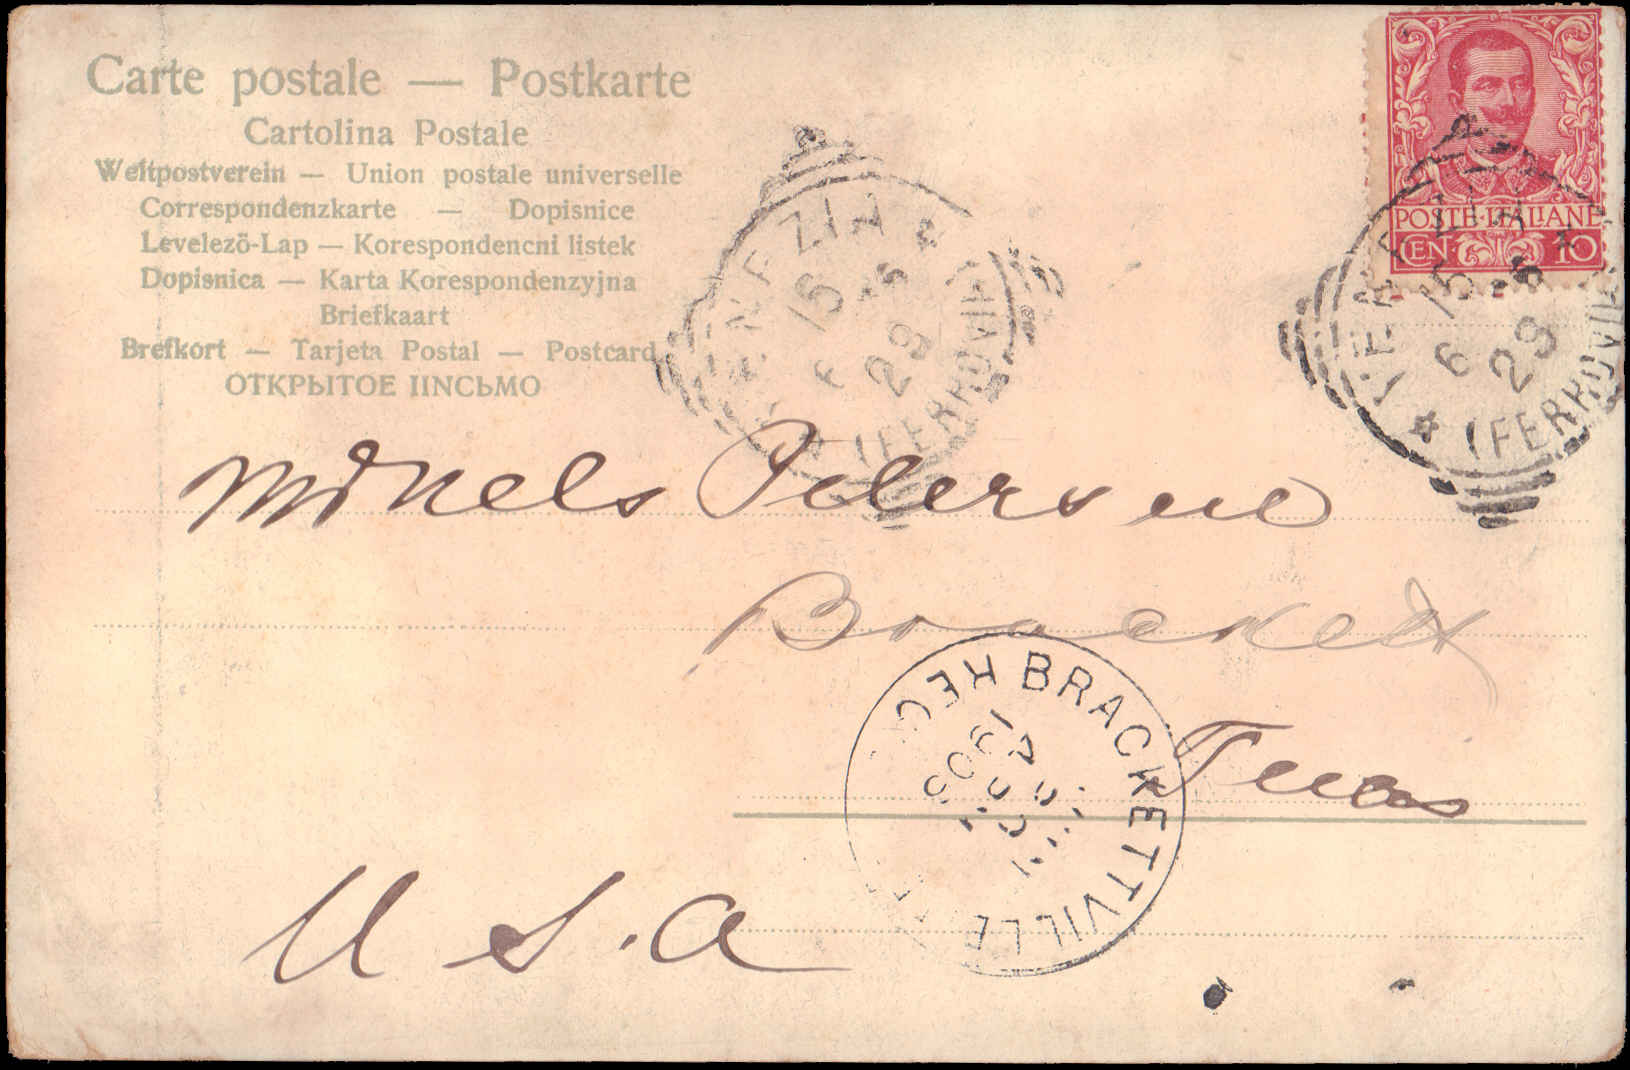 Carte postale — Postkarte
Cartolina Postale
Weltpostverein — Union postale universelle
Correspondenzkarte — Dopisnice
Levelező-Lap — Korespondencni listek
Dopisnica — Karta Korespondenzyjna
Briefkaart
Brefkort — Tarjeta Postal — Postcard
ОТКРЫТОЕ ПИСЬМО
POSTE·ITALIANE
CEN· 10
VENEZIA
15
6 29
(FERROVIA)
VENEZIA
15
6 29
(FERROVIA)
Nels Petersen
Brackett
Texas
BRACKETTVILLE
REC'D
U S. A